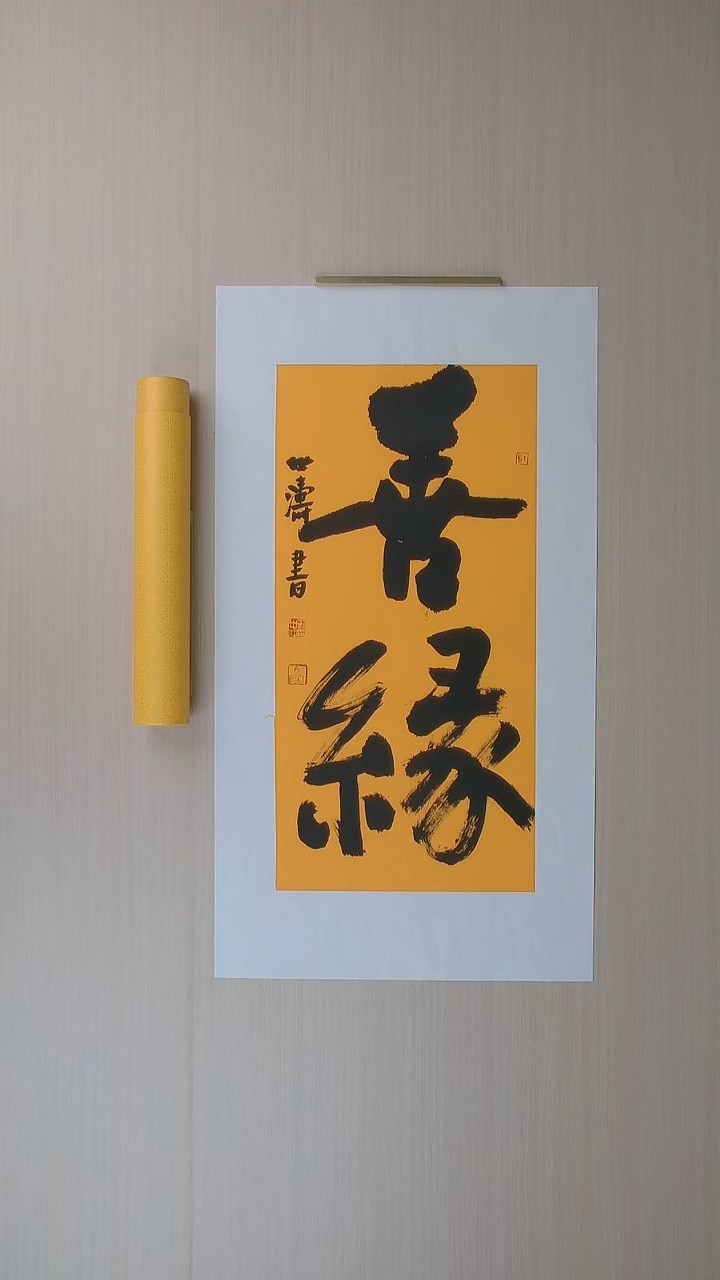 善
緣
世濤書